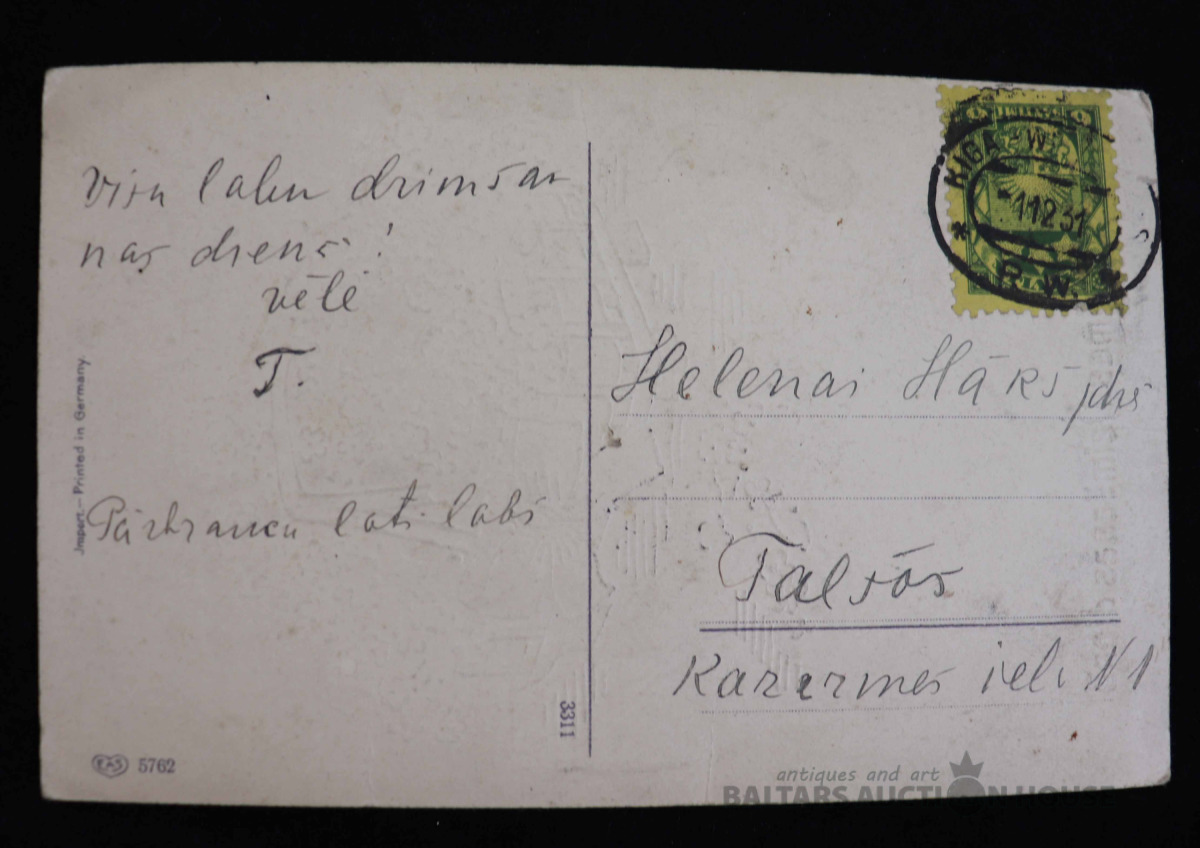 Visu labu dzimšan
nas dienā!
vēlē
T.
Pārbraucu loti labi
Import. – Printed in Germany
EAS 5762
3311
6 6
RIGA
11 2 31
R. W.
Helenai
Talsos
Kazarmes iela N 1
antiques and art
BALTARS AUCTION HOUSE